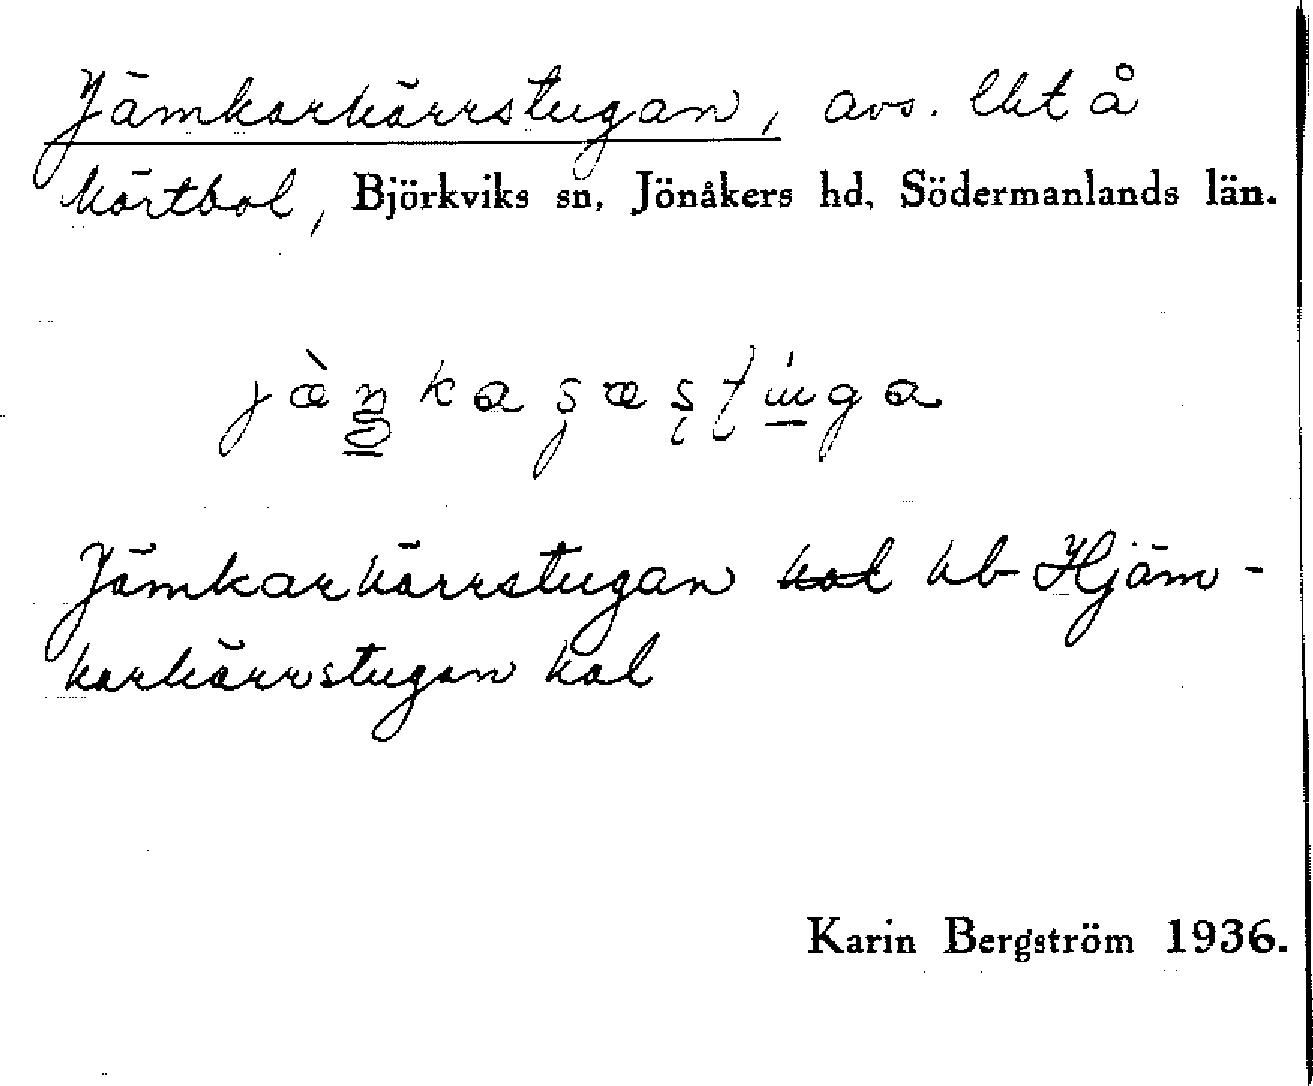 Jämkarkärrstugan, avs. lht å
Körtbol, Björkviks sn, Jönåkers hd, Södermanlands län.
Jämkarkärrstugan kol kb Hjäm-
karkärrstugan kol
Karin Bergström 1936.